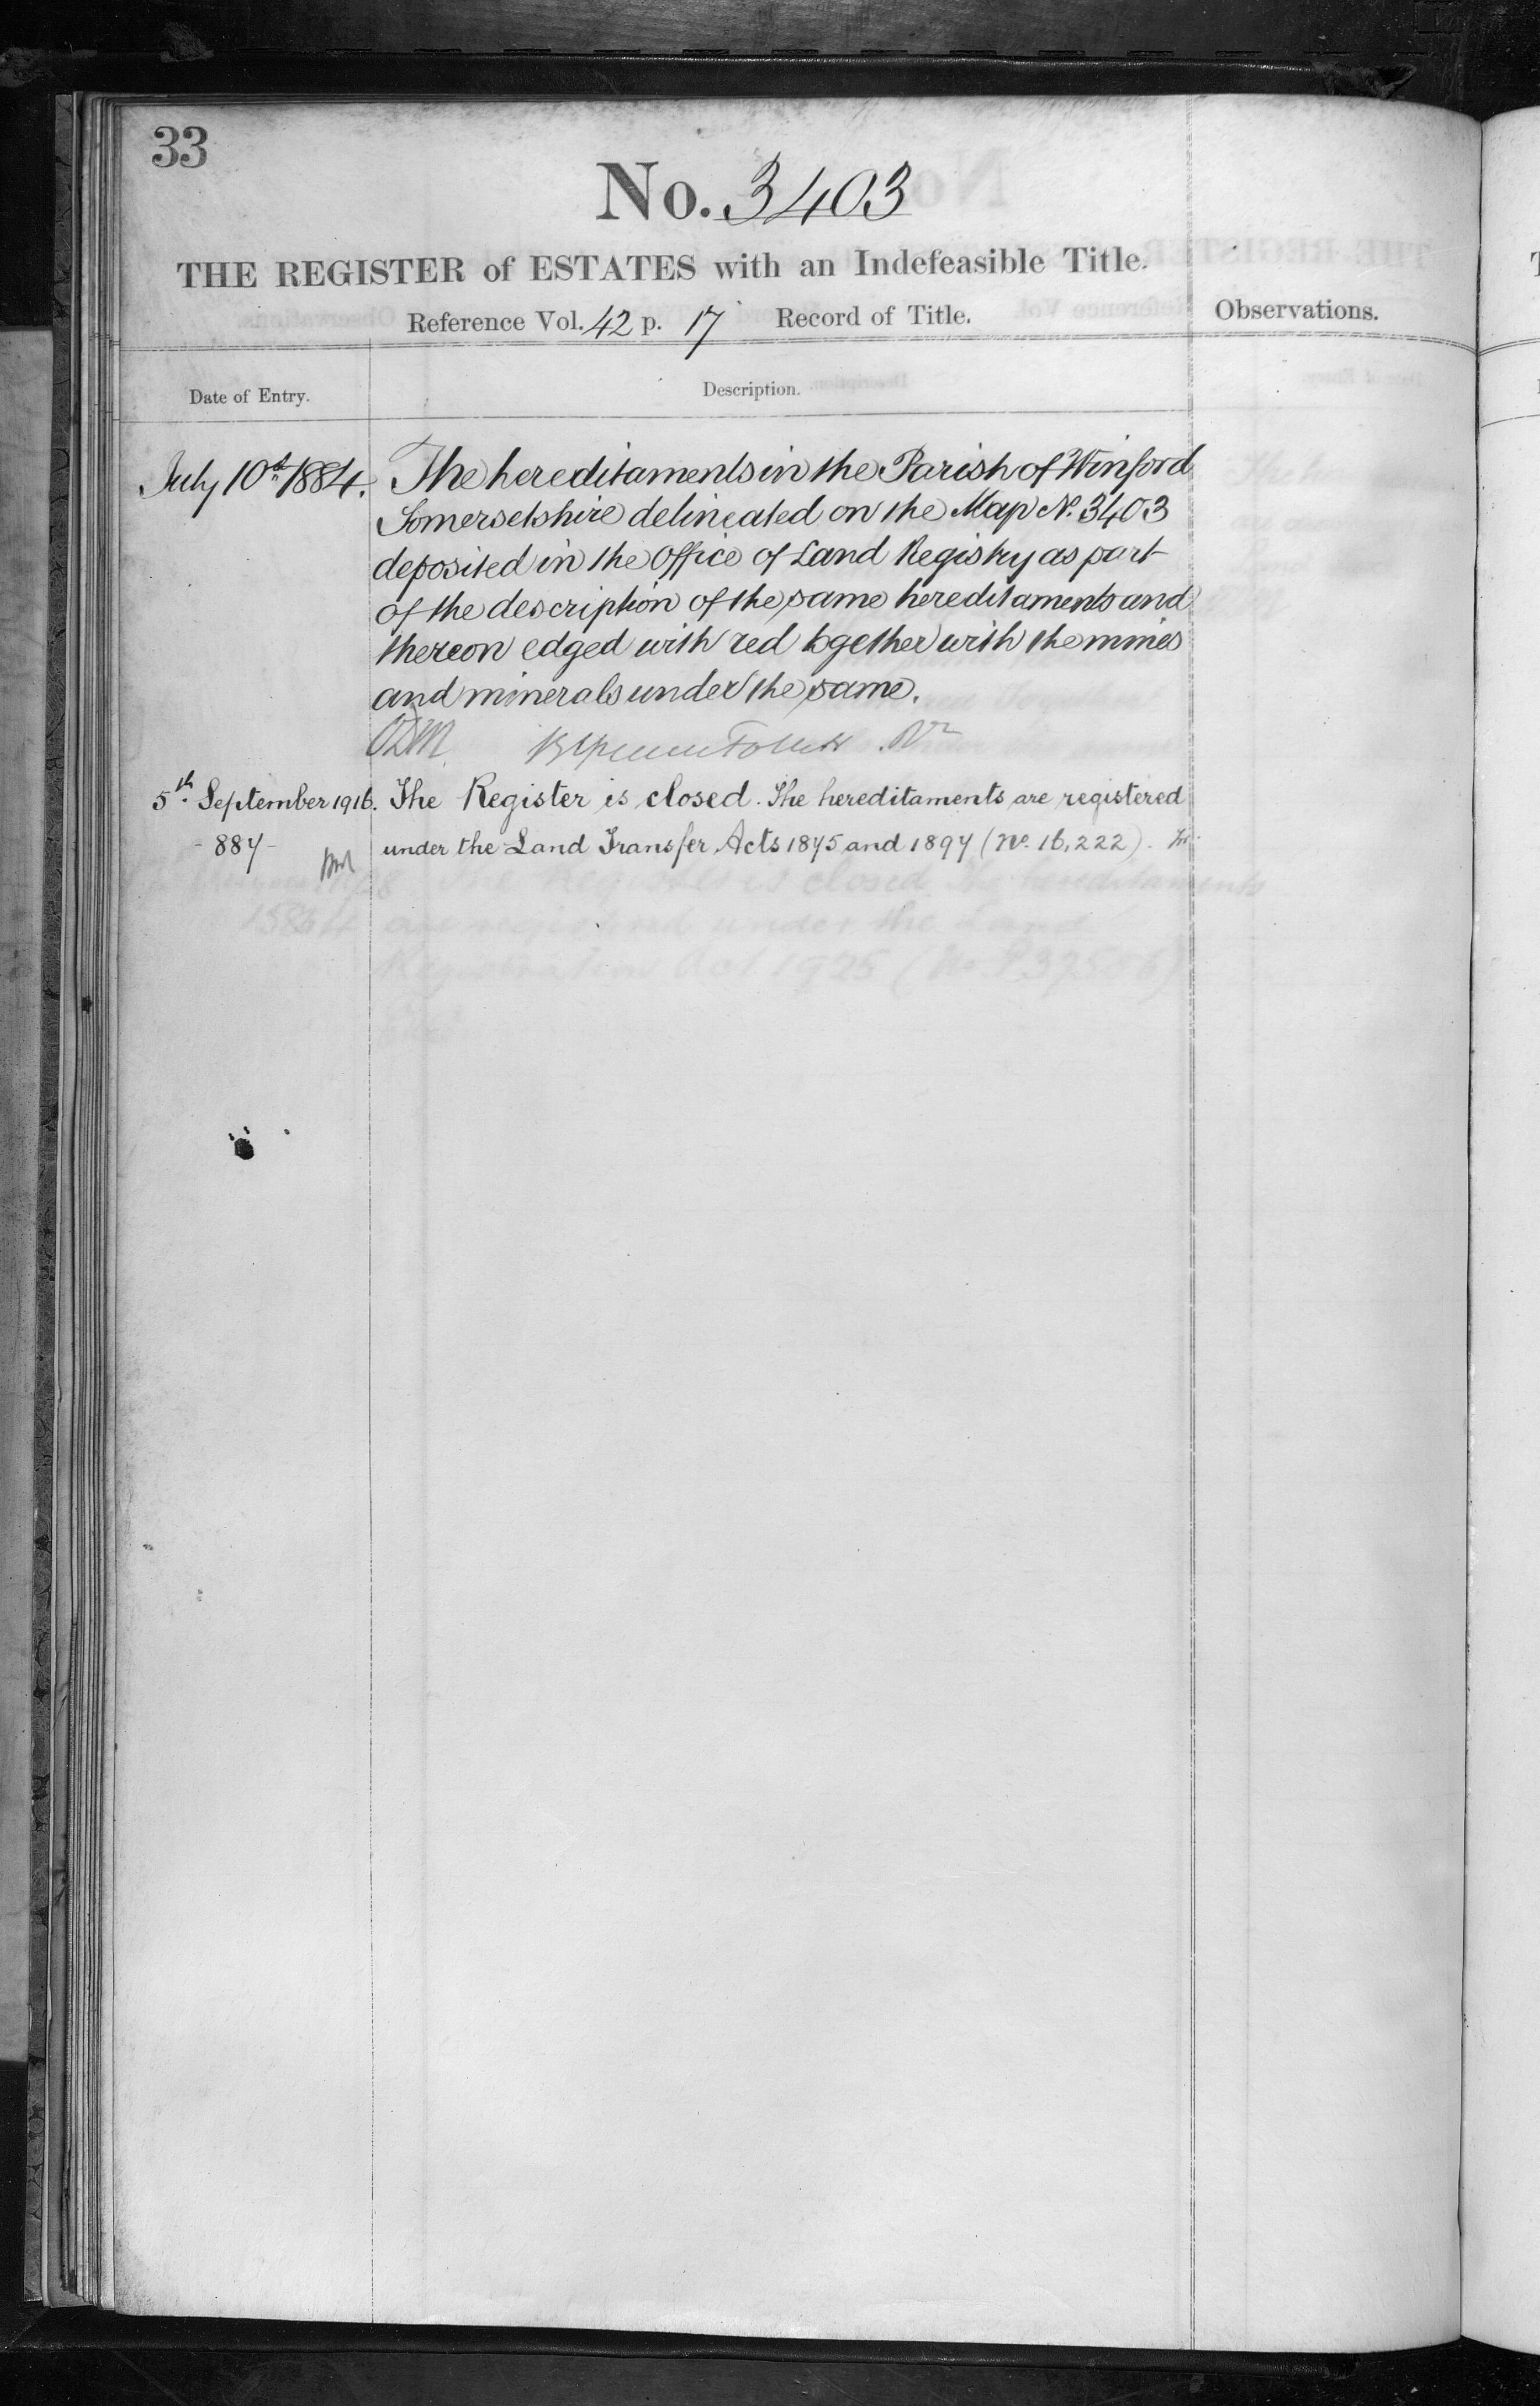 33
No. 3403
THE REGISTER of ESTATES with an Indefeasible Title.
Reference Vol. 42 p. 17 Record of Title.
Observations.
Date of Entry.
Description.
July 10th 1884. The hereditaments in the Parish of Winford
Somersetshire delineated on the Map No. 3403
deposited in the Office of Land Registry as part
of the description of the same hereditaments and
thereon edged with red together with the mines
and minerals under the same.
5th September 1916. The Register is closed. The hereditaments are registered
- 887 - under the Land Transfer Acts 1875 and 1897 (No. 16,222).
The Register is closed The hereditaments
are registered under the Land
Registration Act 1925